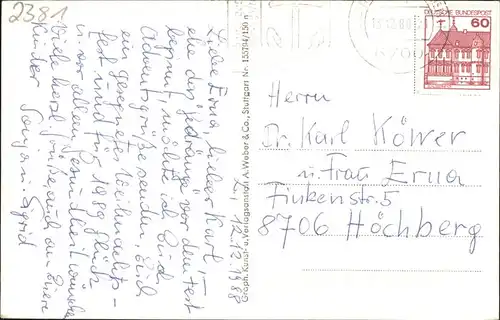 2381
L., 12.12.1988
Liebe Erna, lieber Karl!
ehe das Gedränge vor dem Fest
beginnt, möchte ich Euch
Adventsgrüße senden, Euch
ein gesegnetes Weihnachts-
fest und für 1989 Glück
u. vor allem Gesundheit wünschen
Viele herzl. Grüße, auch an Eure
Kinder Sonja u. Sigrid
Graph. Kunst- u. Verlagsanstalt A. Weber & Co., Stuttgart Nr. 155/294/150 n
DEUTSCHE BUNDESPOST
60
Herrn
Dr. Karl Köwer
u. Frau Erna
Finkenstr. 5
8706 Höchberg